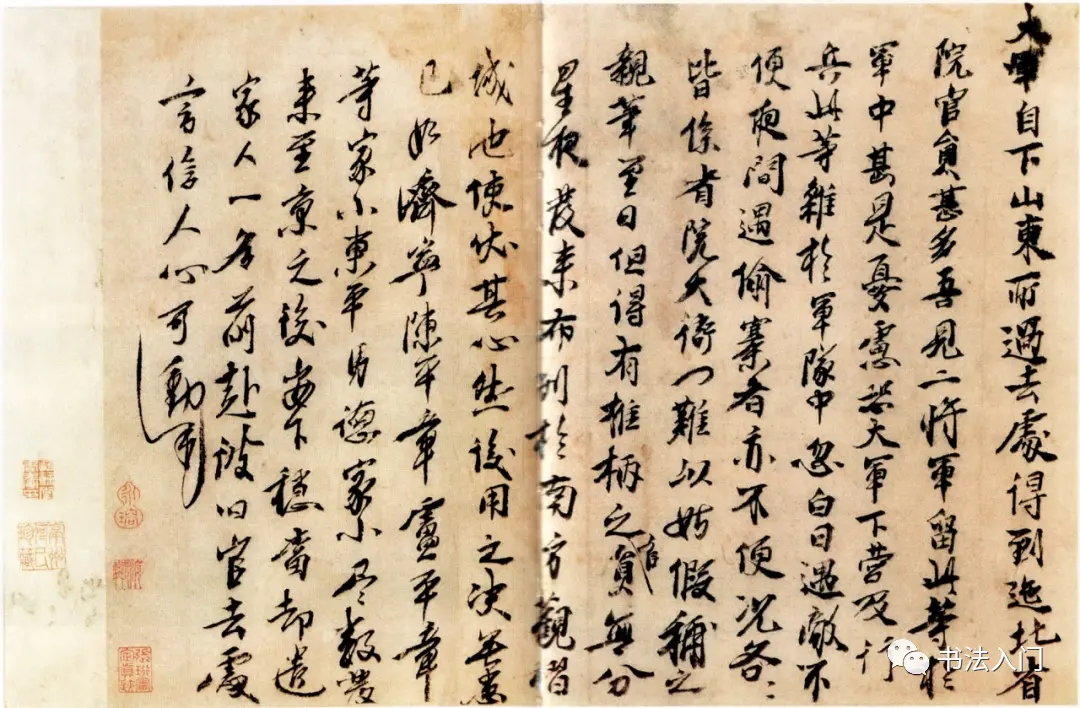 大軍自下山東所過去處得到迤北省
院官員甚多吾見二將軍留此等於
軍中甚是憂慮恐大軍下營及行
兵此等雜於軍隊中忽白日遇敵不
便夜間遇偷寨者亦不便況各〻
皆係省院大衙門難以姑假補之
親筆至日但得有椎柄之官員無分
星夜發來布列於南方觀習
城池使伏其心然後用之決無患
已如濟寧陳平章盧平章
等家小東平馬德家小盡數發
來至京之後安下穩當却遣
家人一名前赴彼旧官去處
言信人心可動
书法入门